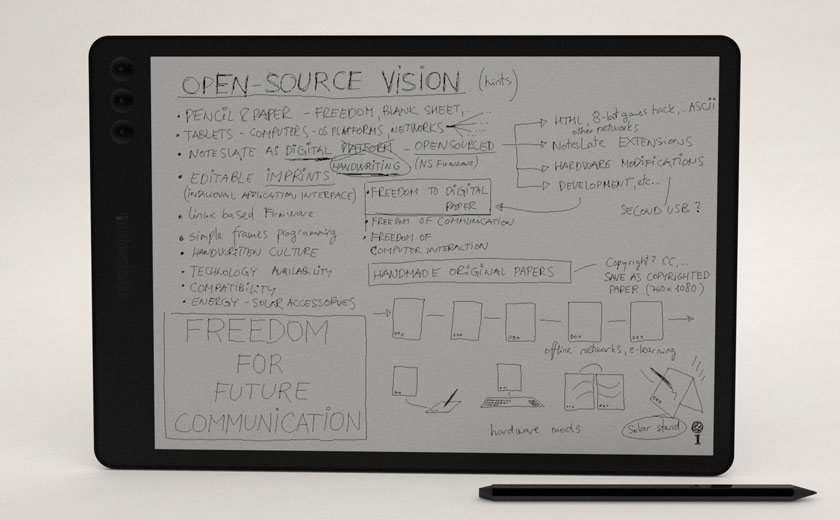 OPEN-SOURCE VISION (hints)
• PENCIL & PAPER - FREEDOM, BLANK SHEET,...
• TABLETS - COMPUTERS - OS PLATFORMS, NETWORKS
• NOTESLATE AS DIGITAL PLATFORM - OPENSOURCED
HANDWRITING (NS Firmware)
• EDITABLE IMPRINTS
(INDIVIDUAL APPLICATION INTERFACE)
• linux based Firmware
• simple frames programming
• HANDWRITTEN CULTURE
• TECHNOLOGY AVAILABILITY
• COMPATIBILITY
• ENERGY - SOLAR ACCESSORVES
HTML, 8-bit games hack,.. ASCII
other networks
NoteSlate EXTENSIONS
HARDWARE MODIFICATIONS
DEVELOPMENT, etc...
SECOND USB?
• FREEDOM TO DIGITAL
PAPER
• FREEDOM OF COMMUNICATION
• FREEDOM OF
COMPUTER INTERACTION
HANDMADE ORIGINAL PAPERS
Copyright? CC,...
SAVE AS COPYRIGHTED
PAPER (760x1080)
FREEDOM
FOR
FUTURE
COMMUNICATION
offline networks, e-learning
hardware mods
Solar stand
noteslate